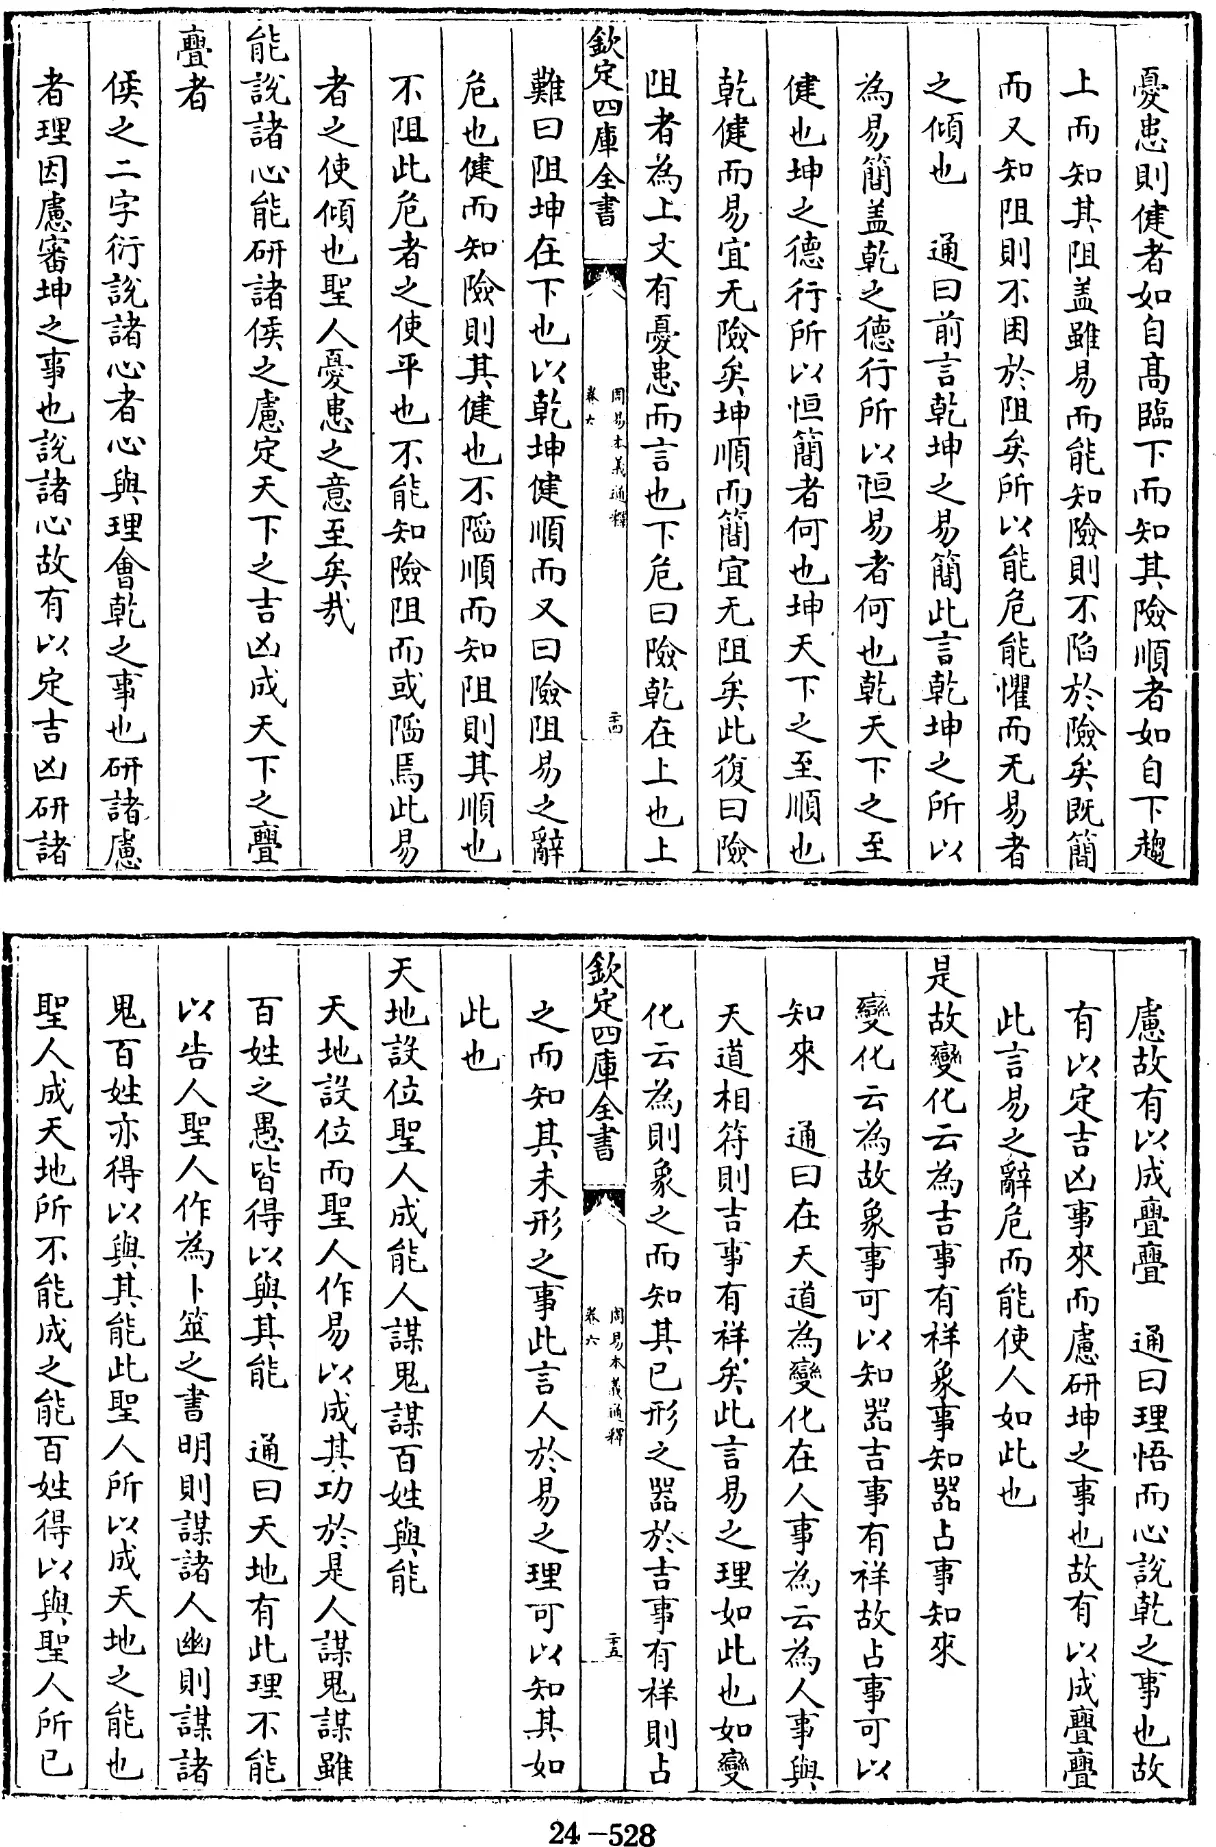 憂患則健者如自髙臨下而知其險順者如自下趨
上而知其阻盖雖易而能知險則不陷於險矣既簡
而又知阻則不困於阻矣所以能危能懼而无易者
之傾也　通曰前言乾坤之易簡此言乾坤之所以
為易簡盖乾之德行所以恒易者何也乾天下之至
健也坤之德行所以恒簡者何也坤天下之至順也
乾健而易宜无險矣坤順而簡宜无阻矣此復曰險
阻者為上文有憂患而言也下危曰險乾在上也上
欽定四庫全書
周易本義通釋
卷六
二十四
難曰阻坤在下也以乾坤健順而又曰險阻易之辭
危也健而知險則其健也不陷順而知阻則其順也
不阻此危者之使平也不能知險阻而或陷焉此易
者之使傾也聖人憂患之意至矣㢤
能說諸心能研諸侯之慮定天下之吉凶成天下之亹
亹者
侯之二字衍說諸心者心與理會乾之事也研諸慮
者理因慮審坤之事也說諸心故有以定吉凶研諸
慮故有以成亹亹　通曰理悟而心說乾之事也故
有以定吉凶事來而慮研坤之事也故有以成亹亹
此言易之辭危而能使人如此也
是故變化云為吉事有祥象事知器占事知來
變化云為故象事可以知器吉事有祥故占事可以
知來　通曰在天道為變化在人事為云為人事與
天道相符則吉事有祥矣此言易之理如此也如變
化云為則象之而知其已形之器於吉事有祥則占
欽定四庫全書
周易本義通釋
卷六
二十五
之而知其未形之事此言人於易之理可以知其如
此也
天地設位聖人成能人謀鬼謀百姓與能
天地設位而聖人作易以成其功於是人謀鬼謀雖
百姓之愚皆得以與其能　通曰天地有此理不能
以告人聖人作為卜筮之書明則謀諸人幽則謀諸
鬼百姓亦得以與其能此聖人所以成天地之能也
聖人成天地所不能成之能百姓得以與聖人所已
24-528